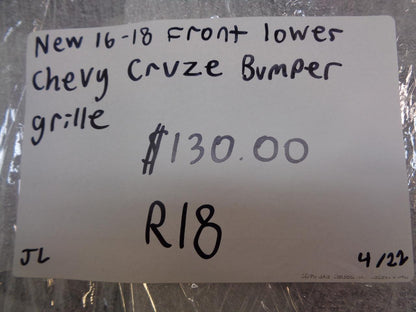 New 16-18 Front lower
Chevy Cruze Bumper
grille
$130.00
R18
JL 4/22